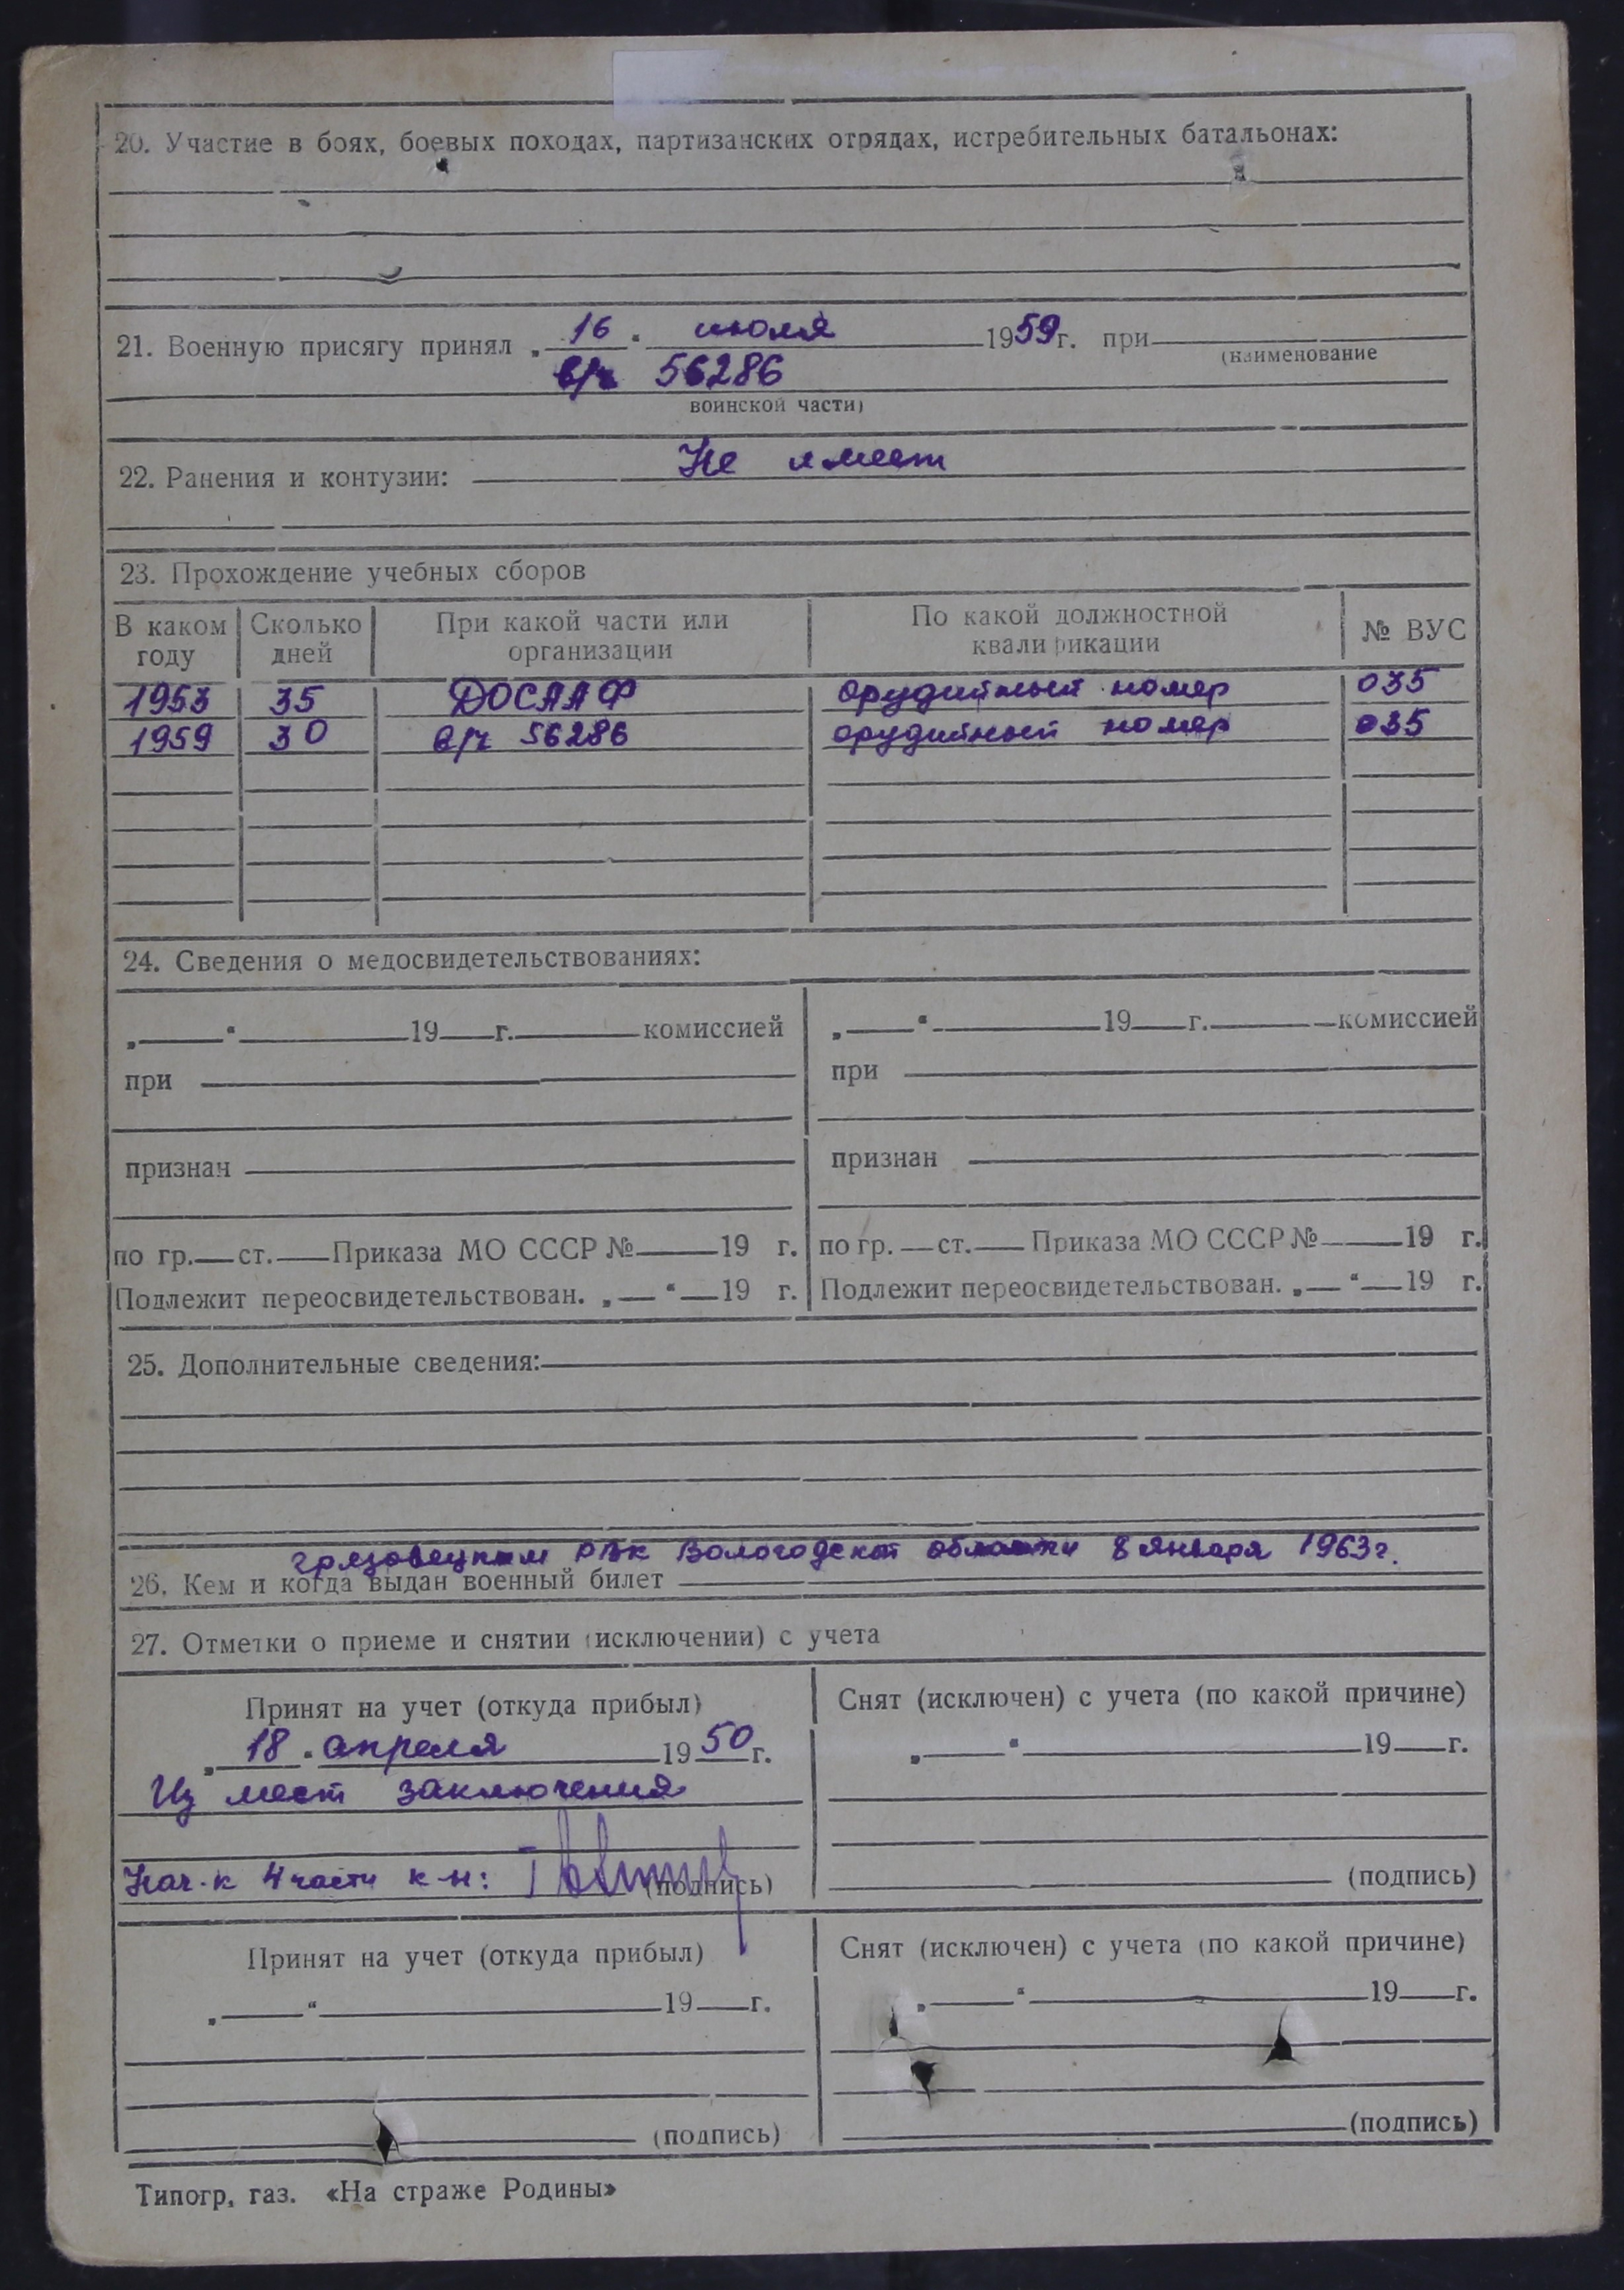 20. Участие в боях, боевых походах, партизанских отрядах, истребительных батальонах:
21. Военную присягу принял „16“ июля 1959г. при
(наименование
в/ч 56286
воинской части)
22. Ранения и контузии: Не имеет
23. Прохождение учебных сборов
В каком году Сколько дней При какой части или организации По какой должностной квалификации № ВУС
1953 35 ДОСААФ орудийный номер 035
1959 30 в/ч 56286 орудийный номер 035
24. Сведения о медосвидетельствованиях:
„ “ 19 г. комиссией „ “ 19 г. комиссией
при при
признан признан
по гр. ст. Приказа МО СССР № 19 г. по гр. ст. Приказа МО СССР № 19 г.
Подлежит переосвидетельствован. „ “ 19 г. Подлежит переосвидетельствован. „ “ 19 г.
25. Дополнительные сведения:
грязовецким РВК Вологодской области 8 января 1963г.
26. Кем и когда выдан военный билет
27. Отметки о приеме и снятии (исключении) с учета
Принят на учет (откуда прибыл) Снят (исключен) с учета (по какой причине)
„18“ апреля 1950г. „ “ 19 г.
Из мест заключения
Нач-к 4 части к-н: (подпись) (подпись)
Принят на учет (откуда прибыл) Снят (исключен) с учета (по какой причине)
„ “ 19 г. „ “ 19 г.
(подпись) (подпись)
Типогр. газ. «На страже Родины»